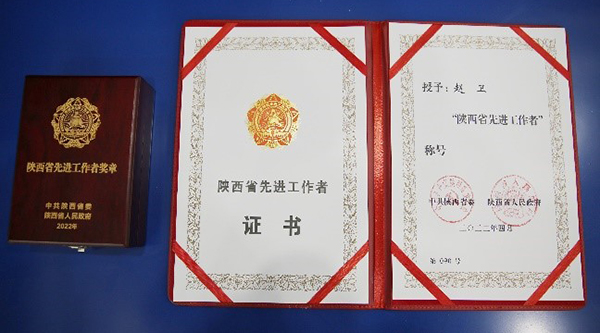 陕西省先进工作者奖章
中共陕西省委
陕西省人民政府
2022年
陕西省先进工作者
证书
授予：赵 卫
“陕西省先进工作者”
称号
中共陕西省委 陕西省人民政府
二〇二二年四月
第 098 号